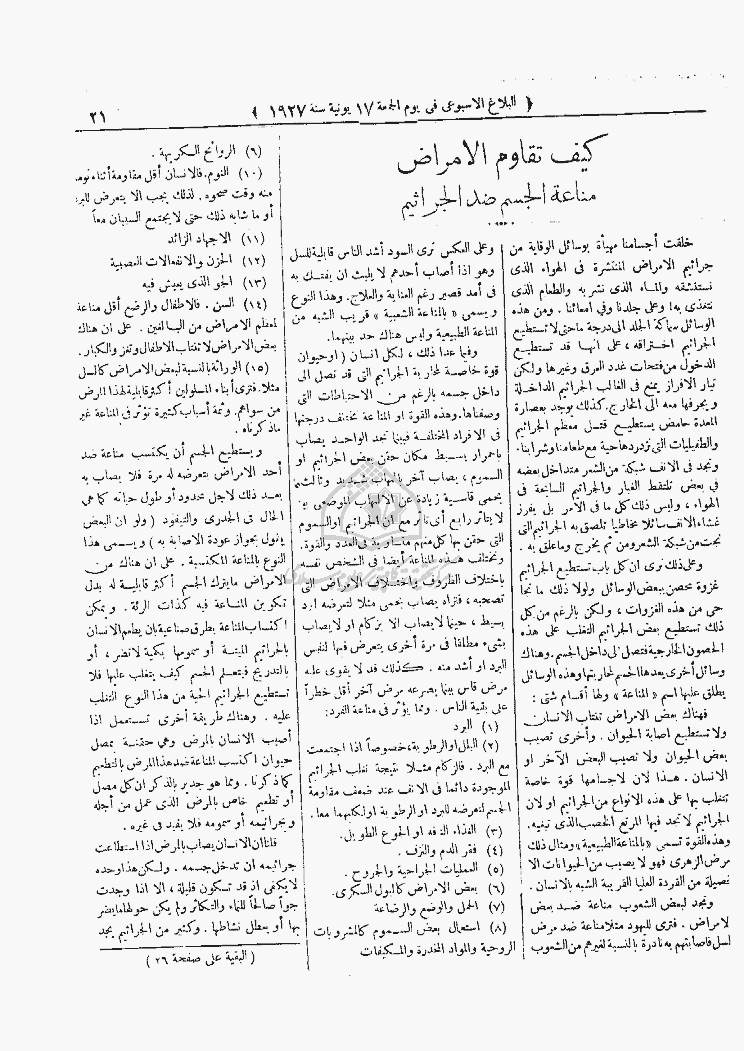 ﴿ البلاغ الاسبوعى فى يوم الجمعة ١٧ يونية سنة ١٩٢٧ ﴾
٢١
كيف تقاوم الامراض
مناعة الجسم ضد الجراثيم
خلقت أجسامنا مهيأة بوسائل الوقاية من
جراثيم الامراض المنتشرة فى الهواء الذى
نستنشقه والماء الذى نشربه والطعام الذى
نتغذى به او على جلدنا وفى أمعائنا . ومن هذه
الوسائل سماكة الجلد الى درجة ما حتى لا تستطيع
الجراثيم اختراقه ، على انها قد تستطيع
الدخول من فتحات غدد العرق وغيرها ولكن
تيار الافراز يمنع فى الغالب الجراثيم الداخلة
ويجرفها معه الى الخارج. كذلك يوجد بعصارة
المعدة حامض يستطيع قتل معظم الجراثيم
والطفيليات التى نزدردها حية مع طعامنا وشرابنا.
ونجد فى الانف شبكة من الشعر متداخل بعضه
فى بعض تلتقط الغبار والجراثيم السابحة فى
الهواء ، وليس ذلك كل ما فى الامر بل يفرز
غشاء الانف سائلا مخاطيا تلصق به الجراثيم التى
نجت من شبكة الشعر ومن ثم يخرج وما علق به .
وعلى ذلك نرى ان كل باب تستطيع الجراثيم
غزوة محصن ببعض الوسائل ولولا ذلك ما نجا
حى من هذه الغزوات ، ولكن بالرغم من كل
ذلك تستطيع بعض الجراثيم التغلب على هذه
الحصون الخارجية فتصل الى داخل الجسم. وهناك
وسائل أخرى يعدها الجسم لمحاربتها وهذه الوسائل
يطلق عليها اسم « المناعة » ولها أقسام شتى :
فهناك بعض الامراض تنتاب الانسان
ولا تستطيع اصابة الحيوان . وأخرى تصيب
بعض الحيوان ولا تصيب البعض الآخر او
الانسان . هـذا لان لاجسامها قوة خاصة
تتغلب بها على هذه الانواع من الجراثيم او لان
الجراثيم لا تجد فيها المرتع الخصب الذى تبغيه.
وهذه القوة تسمى « بالمناعة الطبيعية » ومثال ذلك
مرض الزهرى فهو لا يصيب من الحيوانات الا
فصيلة من القردة العليا القريبة الشبه بالانسان .
ونجد لبعض الشعوب مناعة ضد بعض
لامراض . فترى لليهود مثلا مناعة ضد مرض
لسل فاصابتهم به نادرة بالنسبة لغيرهم من الشعوب
وعلى العكس نرى السود أشد الناس قابلية للسل
وهو اذا أصاب أحدهم لا يلبث ان يفتك به
فى أمد قصير رغم العناية والعلاج. وهذا النوع
ويسمى « بالمناعة الشعبية » قريب الشبه من
المناعة الطبيعية وليس هناك حد بينهما.
وفيما عدا ذلك ، لكل انسان ( او حيوان
قوة خاصة لمحاربة الجراثيم التى قد تصل الى
داخل جسمه بالرغم من الاحتياطات التى
وصفناها. وهذه القوة او المناعة تختلف درجتها
فى الافراد المختلفة فبينما نجد الواحد يصاب
باحمرار بسيط مكان حقن بعض الجراثيم او
السموم ، يصاب آخر بالتهاب شديد وثالث
بحمى قاسية زيادة عن الالتهاب الموضعى
لا يتأثر رابع أى تأثر مع ان الجراثيم او السموم
التى حقن بها كل منهم متساوية فى العدد والقوة.
وتختلف هذه المناعة أيضا فى الشخص نفسه
باختلاف الظروف واختلاف الامراض التى
تصحبه ، فتراه يصاب بحمى مثلا لتعرضه لبرد
بسيط ، حينما لا يصاب الا بزكام او لا يصاب
بشىء مطلقا فى مرة أخرى يتعرض فيها لنفس
البرد او أشد منه . كذلك قد لا يقوى عليه
مرض قاس بينما يصرعه مرض آخر أقل خطراً
على بقية الناس . ومما يؤثر فى مناعة الفرد:
(١) البرد
(٢) البلل او الرطوبة ، خصوصاً اذا اجتمعت
مع البرد . فالزكام مثلا نتيجة تغلب الجراثيم
الموجودة دائما فى الانف عند ضعف مقاومة
الجسم لتعرضه للبرد او الرطوبة او لكليهما معا .
(٣) الغذاء التافه او الجوع الطويل.
(٤) فقر الدم والنزف .
(٥) العمليات الجراحية والجروح .
(٦) بعض الامراض كالبول السكرى .
(٧) الحمل والوضع والرضاعة
(٨) استعمال بعض السموم كالمشروبات
الروحية والمواد المخدرة والمكيفات
(٦) الروائح الكريهة .
(١٠) النوم. فالانسان أقل مقاومة أثناء نومه
منه وقت صحوه . لذلك يجب الا يتعرض للبرد
أو ما شابه ذلك حتى لا يجتمع السببان معاً
(١١) الاجهاد الزائد
(١٢) الحزن والانفعالات العصبية
(١٣) الجو الذى يعيش فيه
(١٤) السن . فالاطفال والرضع أقل مناعة
لمعظم الامراض من البالغين . على ان هناك
بعض الامراض لا تنتاب الاطفال وتغزو الكبار.
(١٥) الوراثة بالنسبة لبعض الامراض كالسل
مثلا. فترى أبناء المسلولين أكثر قابلية لهذا المرض
من سواهم. وثمة أسباب كثيرة تؤثر فى المناعة غير
ما ذكرناه .
ويستطيع الجسم أن يكتسب مناعة ضد
أحد الامراض بتعرضه له مرة فلا يصاب به
بعد ذلك لاجل محدود أو طول حياته كما هى
الحال فى الجدرى والتيفود ( ولو ان البعض
يقول بجواز عودة الاصابة به ) ويسمى هذا
النوع بالمناعة المكتسبة . على ان هناك من
الامراض ما يترك الجسم أكثر قابلية له بدل
تكوين المناعة فيه كذات الرئة . ويمكن
اكتساب المناعة بطرق صناعية بان يطعم الانسان
بالجراثيم الميتة أو سمومها بكمية لا تضر ، أو
بالتدريج فيتعلم الجسم كيف يتغلب عليها فلا
تستطيع الجراثيم الحية من هذا النوع التغلب
عليه . وهناك طريقة أخرى تستعمل اذا
أصيب الانسان بالمرض وهى حقنه بمصل
حيوان اكتسب المناعة ضد هذا المرض بالتطعيم
كما ذكرنا . ومما هو جدير بالذكر ان كل مصل
أو تطعيم خاص بالمرض الذى عمل من أجله
وبجراثيمه أو سمومه فلا يفيد فى غيره .
قلنا ان الانسان يصاب بالمرض اذا استطاعت
جراثيمه ان تدخل جسمه . ولكن هذا وحده
لا يكفى اذ قد تكون قليلة ، الا اذا وجدت
جواً صالحاً للنماء والتكاثر ولم يكن حولها ما يضر
بها أو يعطل نشاطها . وكثير من الجراثيم يجد
( البقية على صفحة ٢٦ )